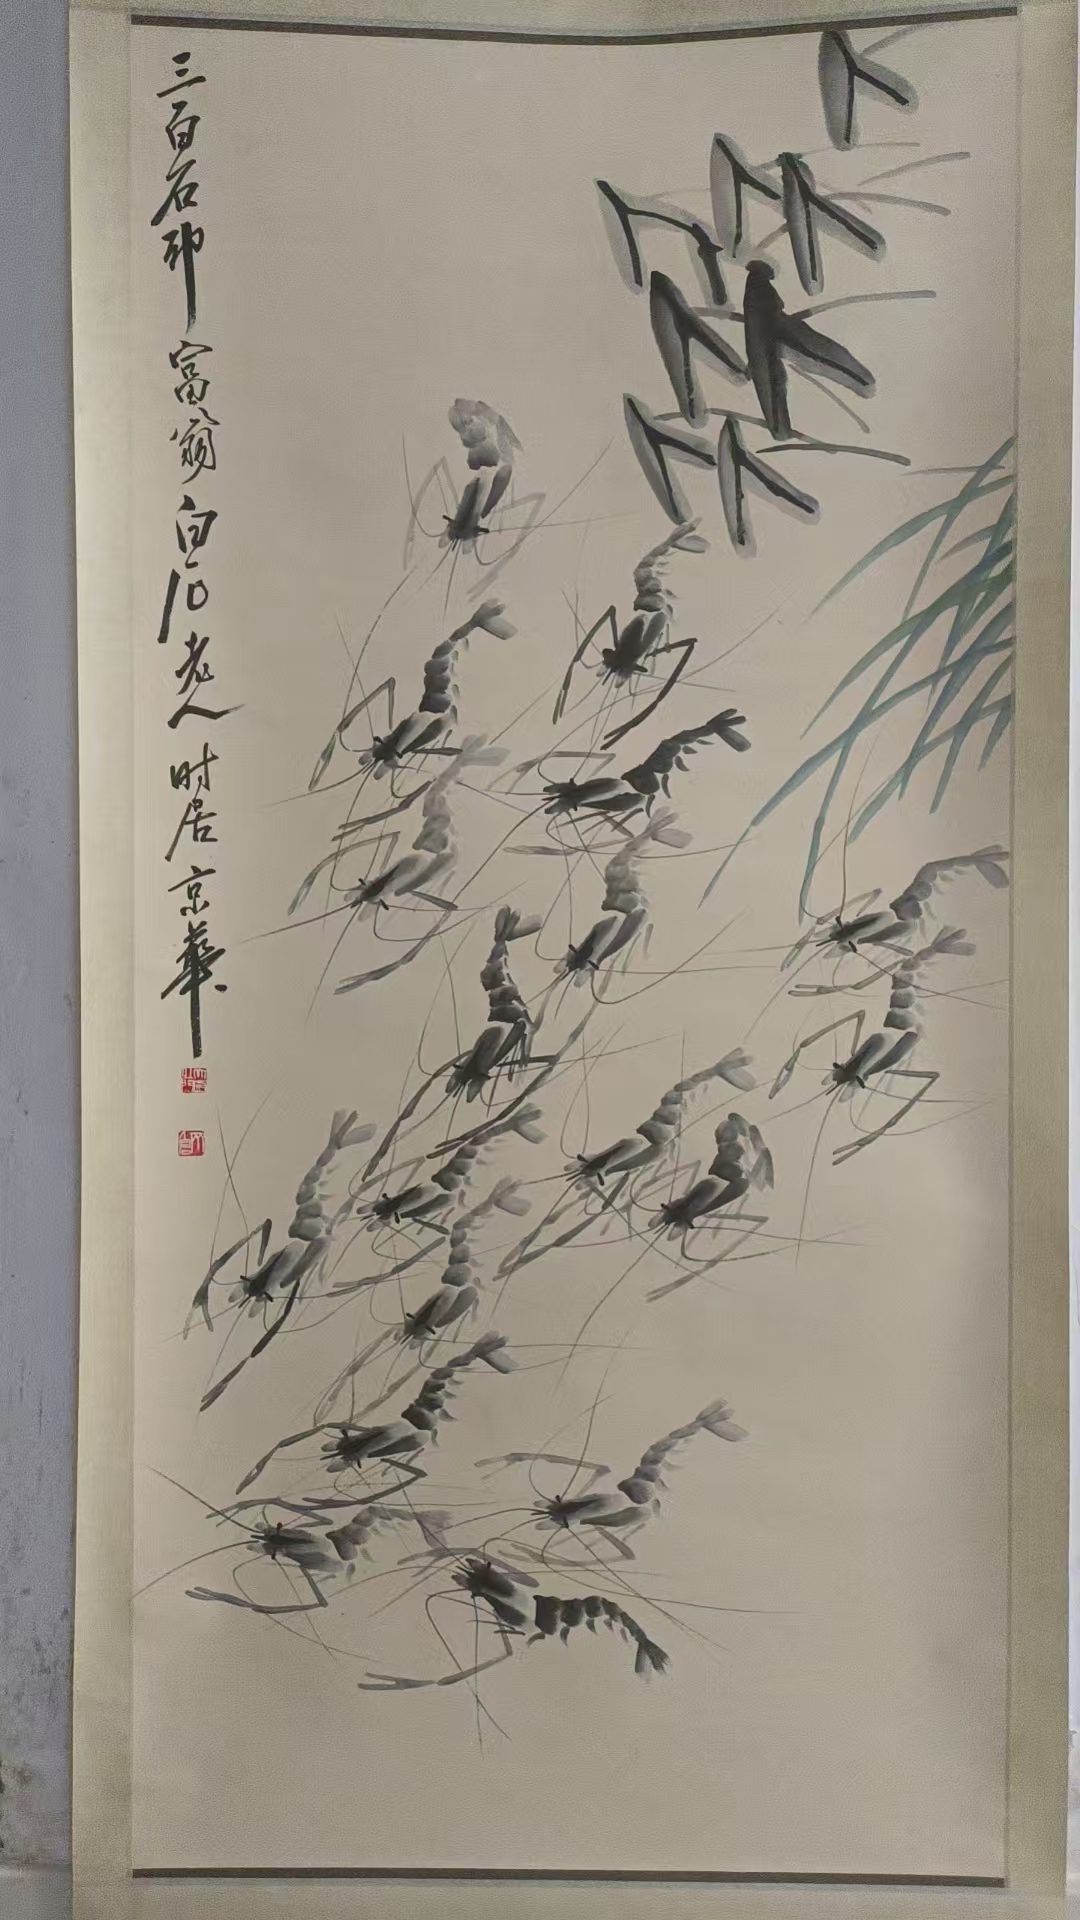 三百石印富翁白石老人时居京華